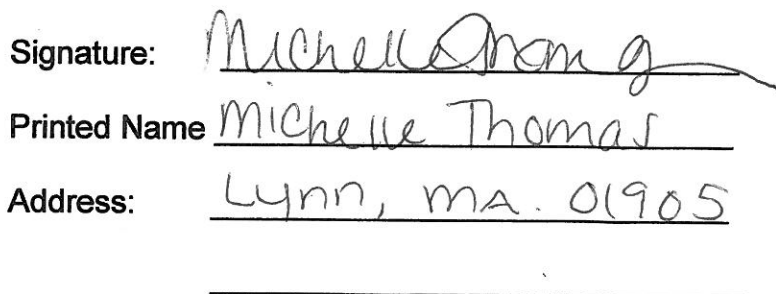 Signature: Michelle Thomas
Printed Name Michelle Thomas
Address: Lynn, MA. 01905